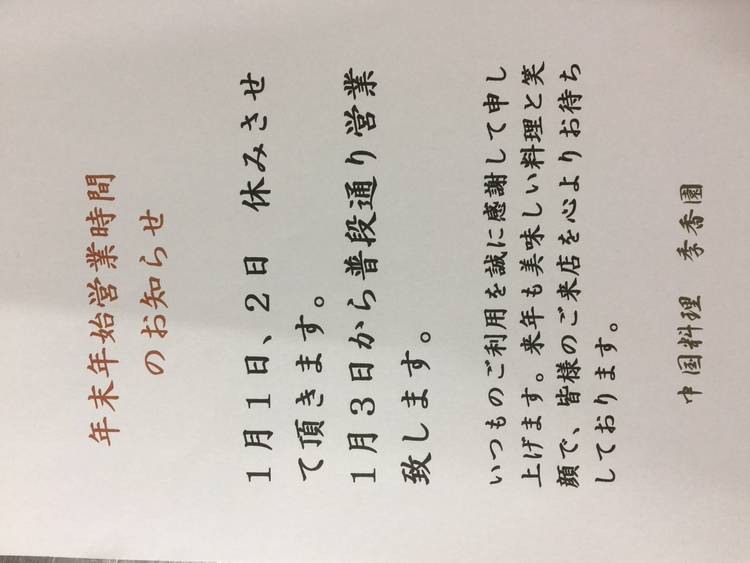 年末年始営業時間
のお知らせ
１月１日、２日　休みさせ
て頂きます。
１月３日から普段通り営業
致します。
いつものご利用を誠に感謝して申し
上げます。来年も美味しい料理と笑
顔で、皆様のご来店を心よりお待ち
しております。
中国料理　季香園